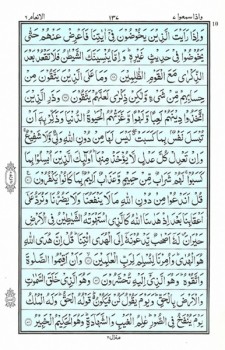 واذا سمعوا ٧ ١٣٧ الانعام ٦
وَاِذَا رَاَيْتَ الَّذِيْنَ يَخُوْضُوْنَ فِيْٓ اٰيٰتِنَا فَاَعْرِضْ عَنْهُمْ حَتّٰى
يَخُوْضُوْا فِيْ حَدِيْثٍ غَيْرِهٖ ۭ وَاِمَّا يُنْسِيَنَّكَ الشَّيْطٰنُ فَلَا تَقْعُدْ بَعْدَ
الذِّكْرٰى مَعَ الْقَوْمِ الظّٰلِمِيْنَ ۝ وَمَا عَلَى الَّذِيْنَ يَتَّقُوْنَ مِنْ
حِسَابِهِمْ مِّنْ شَيْءٍ وَّلٰكِنْ ذِكْرٰى لَعَلَّهُمْ يَتَّقُوْنَ ۝ وَذَرِ الَّذِيْنَ
اتَّخَذُوْا دِيْنَهُمْ لَعِبًا وَّلَهْوًا وَّغَرَّتْهُمُ الْحَيٰوةُ الدُّنْيَا وَذَكِّرْ بِهٖٓ اَنْ
تُبْسَلَ نَفْسٌۢ بِمَا كَسَبَتْ ۖ لَيْسَ لَهَا مِنْ دُوْنِ اللّٰهِ وَلِيٌّ وَّلَا شَفِيْعٌ ۚ
وَاِنْ تَعْدِلْ كُلَّ عَدْلٍ لَّا يُؤْخَذْ مِنْهَا ۭ اُولٰٓئِكَ الَّذِيْنَ اُبْسِلُوْا بِمَا
كَسَبُوْا ۚ لَهُمْ شَرَابٌ مِّنْ حَمِيْمٍ وَّعَذَابٌ اَلِيْمٌۢ بِمَا كَانُوْا يَكْفُرُوْنَ ۝
قُلْ اَنَدْعُوْا مِنْ دُوْنِ اللّٰهِ مَا لَا يَنْفَعُنَا وَلَا يَضُرُّنَا وَنُرَدُّ عَلٰٓى
اَعْقَابِنَا بَعْدَ اِذْ هَدٰىنَا اللّٰهُ كَالَّذِي اسْتَهْوَتْهُ الشَّيٰطِيْنُ فِي الْاَرْضِ
حَيْرَانَ ۠ لَهٗٓ اَصْحٰبٌ يَّدْعُوْنَهٗٓ اِلَى الْهُدَى ائْتِنَا ۭ قُلْ اِنَّ هُدَى اللّٰهِ
هُوَ الْهُدٰى ۭ وَاُمِرْنَا لِنُسْلِمَ لِرَبِّ الْعٰلَمِيْنَ ۝ وَاَنْ اَقِيْمُوا الصَّلٰوةَ
وَاتَّقُوْهُ ۭ وَهُوَ الَّذِيْٓ اِلَيْهِ تُحْشَرُوْنَ ۝ وَهُوَ الَّذِيْ خَلَقَ السَّمٰوٰتِ
وَالْاَرْضَ بِالْحَقِّ ۭ وَيَوْمَ يَقُوْلُ كُنْ فَيَكُوْنُ ۚ قَوْلُهُ الْحَقُّ ۭ وَلَهُ الْمُلْكُ
يَوْمَ يُنْفَخُ فِي الصُّوْرِ ۭ عٰلِمُ الْغَيْبِ وَالشَّهَادَةِ ۭ وَهُوَ الْحَكِيْمُ الْخَبِيْرُ ۝
منزل ٢